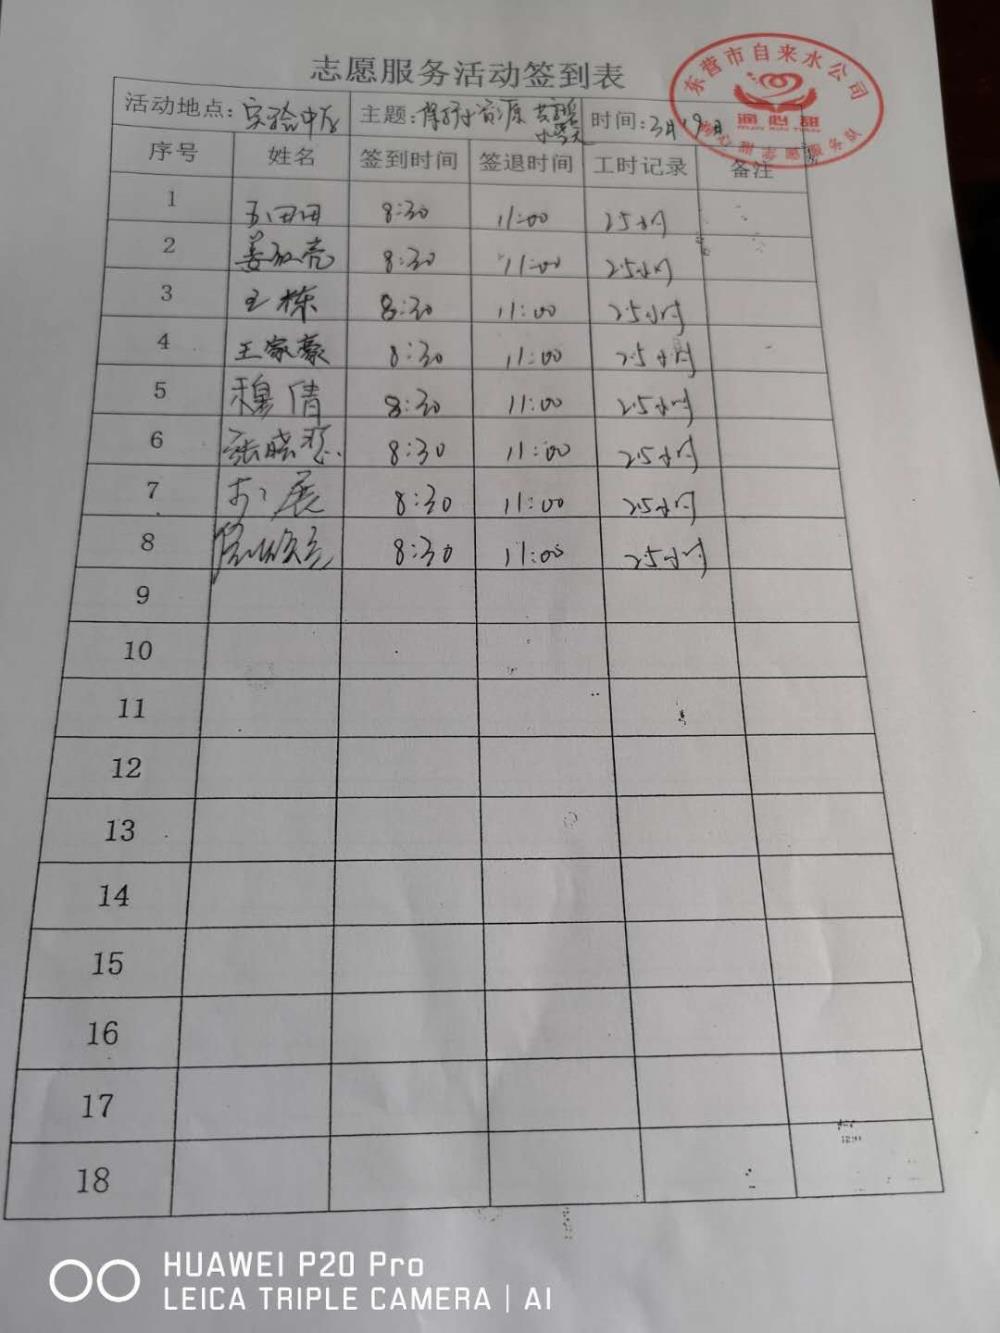 志愿服务活动签到表
东营市自来水公司
通心甜
活动地点：实验中学 主题：保护水资源 共享碧水蓝天 时间：3月19日
序号 姓名 签到时间 签退时间 工时记录 备注
1 王田田 8:30 11:00 2.5小时
2 8:30 11:00 2.5小时
3 王栋 8:30 11:00 2.5小时
4 王家豪 8:30 11:00 2.5小时
5 穆倩 8:30 11:00 2.5小时
6 张晓 8:30 11:00 2.5小时
7 展 8:30 11:00 2.5小时
8 8:30 11:00 2.5小时
9
10
11
12
13
14
15
16
17
18
HUAWEI P20 Pro
LEICA TRIPLE CAMERA | AI